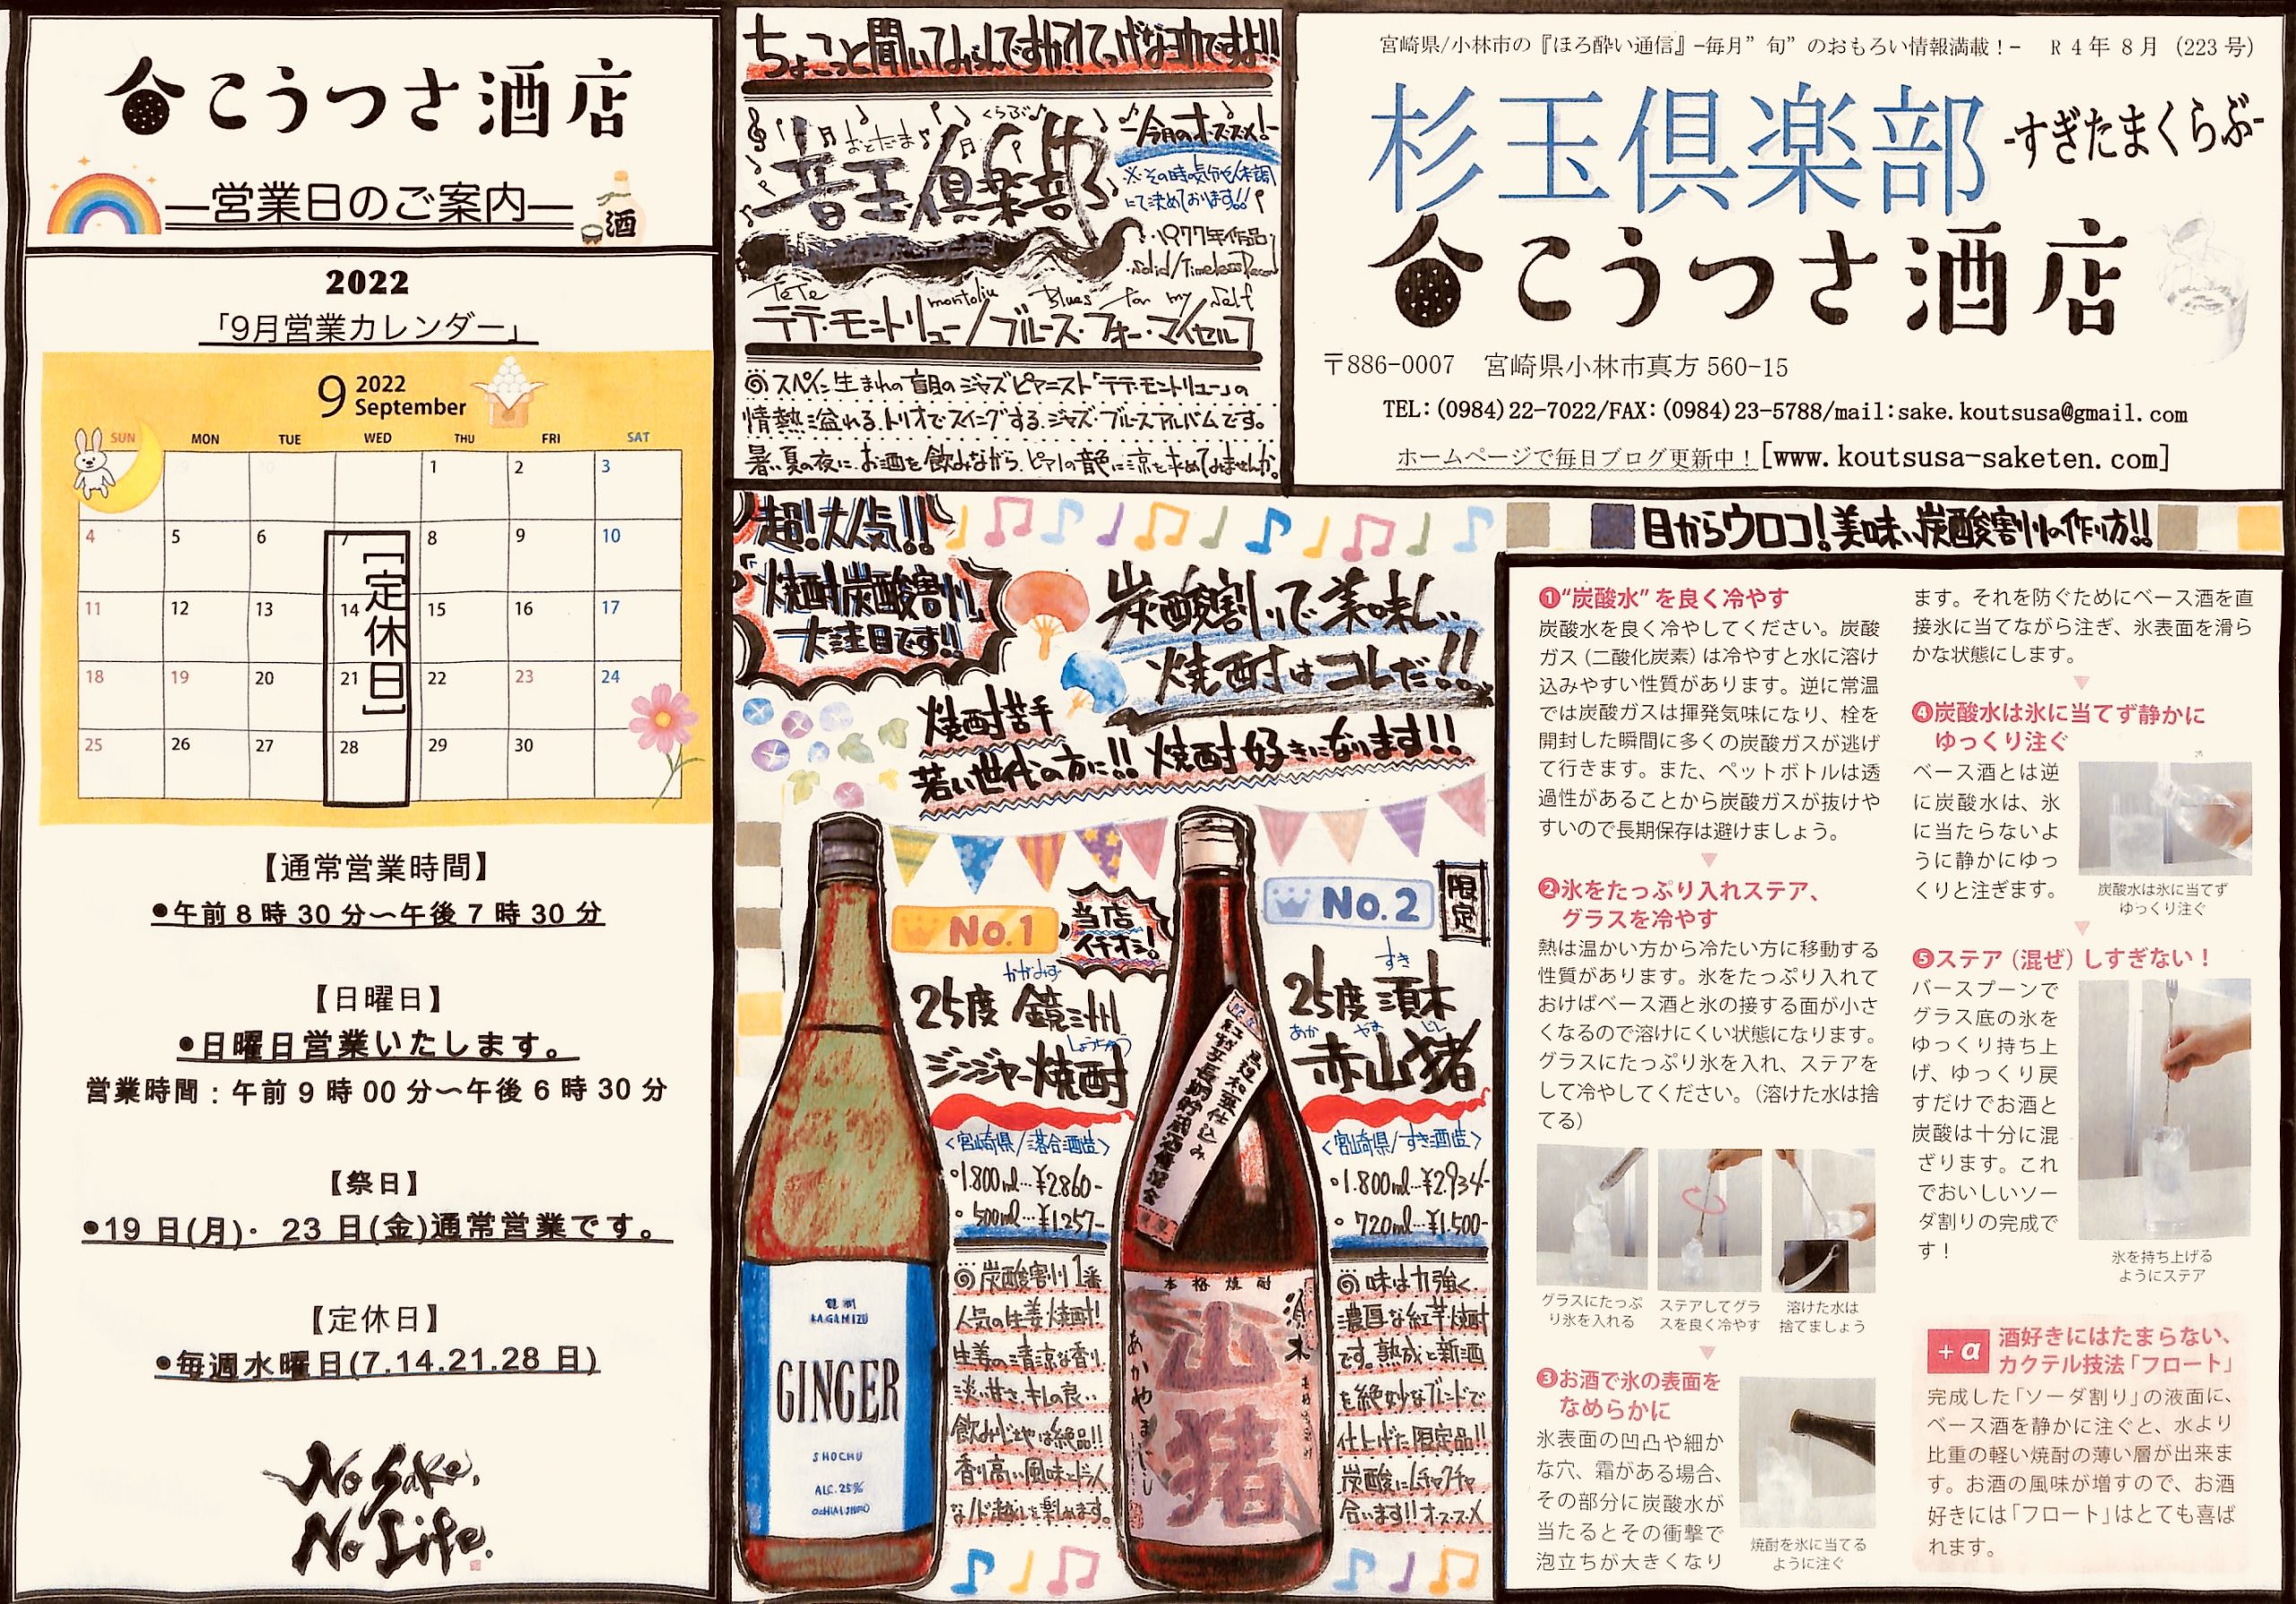 こうつさ酒店
―営業日のご案内―
酒
2022
「9月営業カレンダー」
9 2022
September
SUN MON TUE WED THU FRI SAT
1 2 3
4 5 6 7 8 9 10
11 12 13 14 15 16 17
18 19 20 21 22 23 24
25 26 27 28 29 30
[定休日]
【通常営業時間】
●午前8時30分〜午後7時30分
【日曜日】
●日曜日営業いたします。
営業時間：午前9時00分〜午後6時30分
【祭日】
●19日(月)・23日(金)通常営業です。
【定休日】
●毎週水曜日(7.14.21.28日)
No Sake,
No Life.
ちょこっと聞いてみらんですか!?てげなヨカですよ!!
おとたま くらぶ
音玉倶楽部
-今月のオススメ!-
※その時の気分や体調
にて決めております!!
1977年作品
Solid/Timeless Record
TeTe montoliu Blues for my self
テテ・モントリュー/ブルース・フォー・マイセルフ
◎スペイン生まれの盲目のジャズピアニスト「テテ・モントリュー」の
情熱溢れる、トリオでスイングする、ジャズ・ブルースアルバムです。
暑い夏の夜に、お酒を飲みながら、ピアノの音色に涼を求めてみませんか。
宮崎県/小林市の『ほろ酔い通信』-毎月”旬”のおもろい情報満載！- R4年8月（223号）
杉玉倶楽部 -すぎたまくらぶ-
こうつさ酒店
〒886-0007 宮崎県小林市真方560-15
TEL:(0984)22-7022/FAX:(0984)23-5788/mail:sake.koutsusa@gmail.com
ホームページで毎日ブログ更新中！[www.koutsusa-saketen.com]
超!大人気!!
「焼酎炭酸割り」
大注目です!!
炭酸割りで美味しい
焼酎はコレだ!!
焼酎苦手
若い世代の方に!! 焼酎好きになります!!
No.1
当店
イチオシ!
かがみず
25度 鏡洲
しょうちゅう
ジンジャー焼酎
<宮崎県/落合酒造>
・1.800ml…¥2860-
・500ml…¥1257-
◎炭酸割り1番
人気の生姜焼酎!
生姜の清涼な香り、
淡い甘さ、キレの良い
飲みごたえは絶品!!
香り高い風味とドライ
なノド越しを楽しめます。
鏡洲
KAGAMIZU
GINGER
SHOCHU
ALC.25%
OCHIAI SHUZO
No.2
限定
すき
25度 須木
あか やま じし
赤山猪
<宮崎県/すき酒造>
・1.800ml…¥2.934-
・720ml…¥1.500-
◎味は力強く、
濃厚な紅芋焼酎
です。熟成と新酒
を絶妙なブレンドで
仕上げた限定品!!
炭酸にムチャクチャ
合います!!オススメ
本格焼酎
須木
山猪
あかやまじし
目からウロコ!美味い炭酸割りの作り方!!
❶“炭酸水”を良く冷やす
炭酸水を良く冷やしてください。炭酸
ガス（二酸化炭素）は冷やすと水に溶け
込みやすい性質があります。逆に常温
では炭酸ガスは揮発気味になり、栓を
開封した瞬間に多くの炭酸ガスが逃げ
て行きます。また、ペットボトルは透
過性があることから炭酸ガスが抜けや
すいので長期保存は避けましょう。
❷氷をたっぷり入れステア、
グラスを冷やす
熱は温かい方から冷たい方に移動する
性質があります。氷をたっぷり入れて
おけばベース酒と氷の接する面が小さ
くなるので溶けにくい状態になります。
グラスにたっぷり氷を入れ、ステアを
して冷やしてください。（溶けた水は捨
てる）
グラスにたっぷ
り氷を入れる
ステアしてグラ
スを良く冷やす
溶けた水は
捨てましょう
❸お酒で氷の表面を
なめらかに
氷表面の凹凸や細か
な穴、霜がある場合、
その部分に炭酸水が
当たるとその衝撃で
泡立ちが大きくなり
焼酎を氷に当てる
ように注ぐ
ます。それを防ぐためにベース酒を直
接氷に当てながら注ぎ、氷表面を滑ら
かな状態にします。
❹炭酸水は氷に当てず静かに
ゆっくり注ぐ
ベース酒とは逆
に炭酸水は、氷
に当たらないよ
うに静かにゆっ
くりと注ぎます。
炭酸水は氷に当てず
ゆっくり注ぐ
❺ステア（混ぜ）しすぎない！
バースプーンで
グラス底の氷を
ゆっくり持ち上
げ、ゆっくり戻
すだけでお酒と
炭酸は十分に混
ざります。これ
でおいしいソー
ダ割りの完成で
す！
氷を持ち上げる
ようにステア
+α 酒好きにはたまらない、
カクテル技法「フロート」
完成した「ソーダ割り」の液面に、
ベース酒を静かに注ぐと、水より
比重の軽い焼酎の薄い層が出来ま
す。お酒の風味が増すので、お酒
好きには「フロート」はとても喜ば
れます。